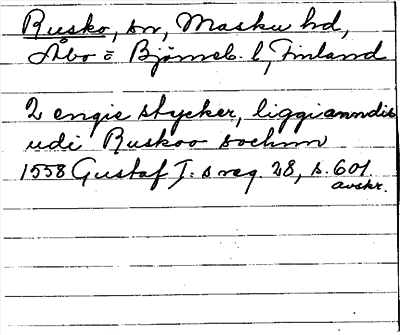 Rusko, sn, Masku hd,
Åbo o Björneb. l, Finland
2 engie stycker, liggianndis
udi Ruskoo sochnn
1558 Gustaf I:s reg. 28, s. 601
avskr.